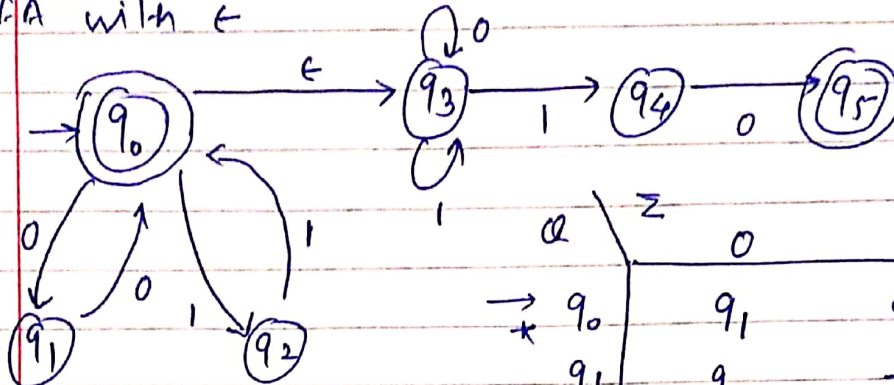 FA with ϵ
0
ϵ
q0
q3
1
q4
0
q5
1
0
0
1
1
q1
q2
Q \ Σ
0
→ * q0 q1
q1 q